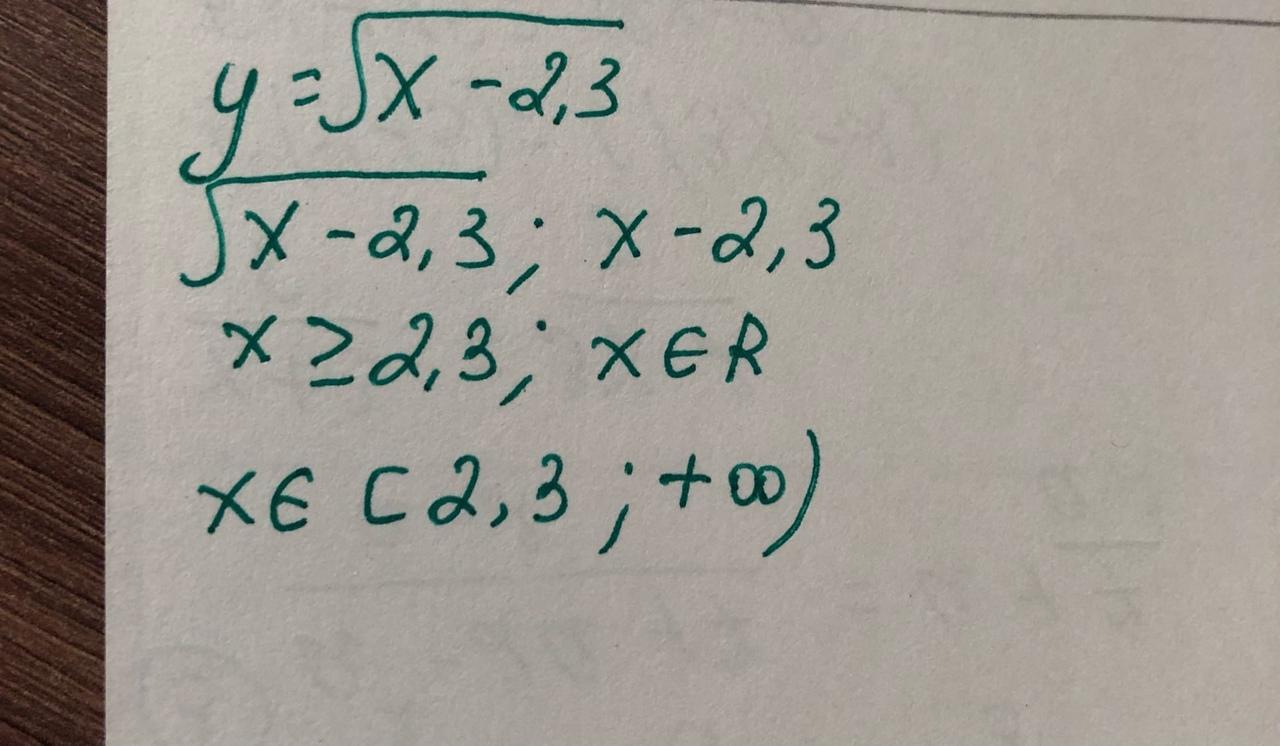 y = √x - 2,3
√x - 2,3 ; x - 2,3
x ≥ 2,3 ; x ∈ R
x ∈ [2,3 ; +∞)